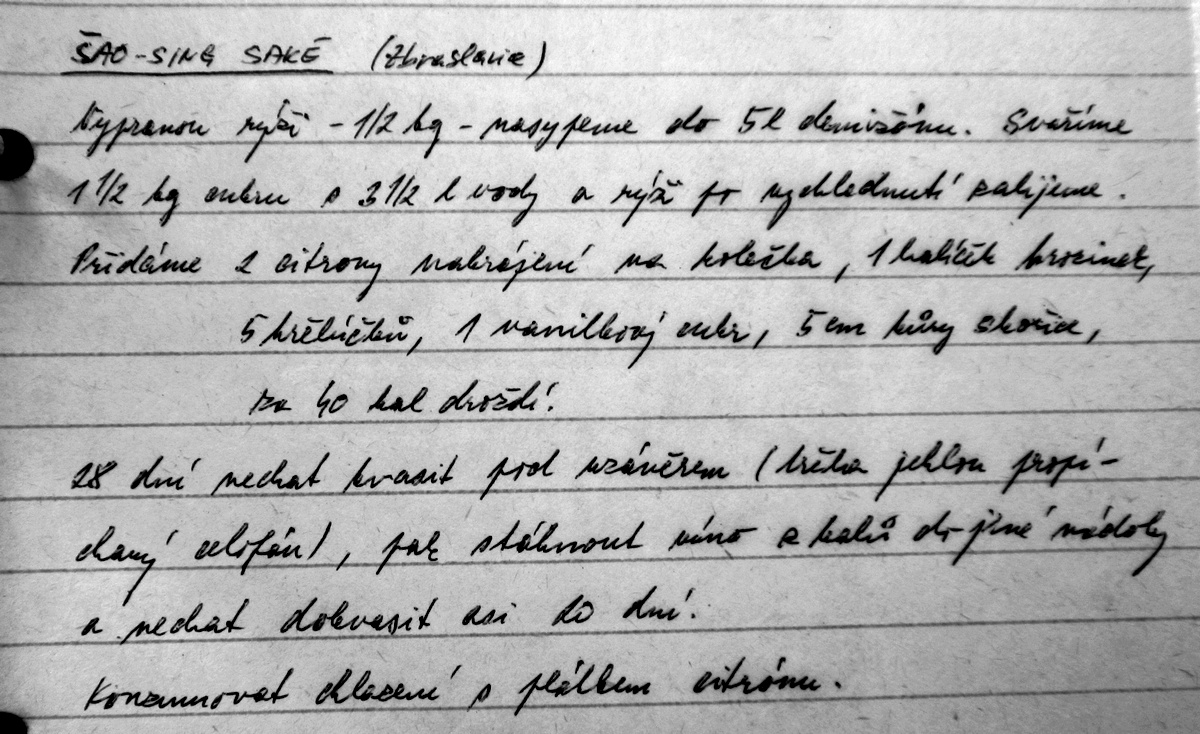 ŠAO-SING SAKÉ (Zbraslavice)
Vypranou rýži - 1/2 kg - nasypeme do 5l demižónu. Svaříme
1 1/2 kg cukru s 3 1/2 l vody a rýži po vychladnutí zalijeme.
Přidáme 2 citrony nakrájení na kolečka, 1 kalíšek hrozinek,
5 hřebíčků, 1 vanilkový cukr, 5 cm kůry skořice,
za 40 hal droždí.
28 dní nechat kvasit pod uzávěrem (třeba jehlou propí-
chaný celofán), pak stáhnout víno z kalů do jiné nádoby
a nechat dokvasit asi dní.
Konzumovat chlazené s plátkem citrónu.